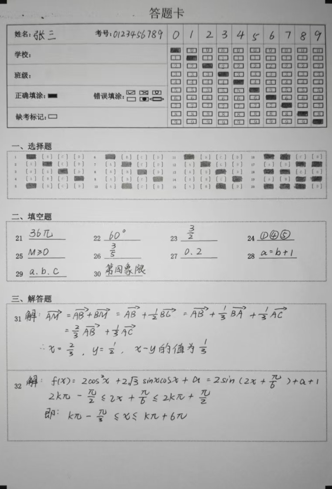 答题卡
姓名: 张三 考号: 0123456789 0 1 2 3 4 5 6 7 8 9
学校:
班级:
正确填涂: 错误填涂:
缺考标记:
一、选择题
二、填空题
21 36π 22 60° 23 3/2 24 ①④⑤
25 M≥0 26 3/5 27 0.2 28 a=b+1
29 a.b.c 30 第四象限
三、解答题
31 解: AM = AB + BM = AB + 1/3 BC = AB + 1/3 BA + 1/3 AC
= 2/3 AB + 1/3 AC
∴ x = 2/3, y = 1/3, x-y的值为 1/3
32 解: f(x) = 2cos²x + 2√3 sinxcosx + a = 2sin(2x + π/6) + a + 1
2kπ - π/2 ≤ 2x + π/6 ≤ 2kπ + π/2
即: kπ - π/3 ≤ x ≤ kπ + 6π